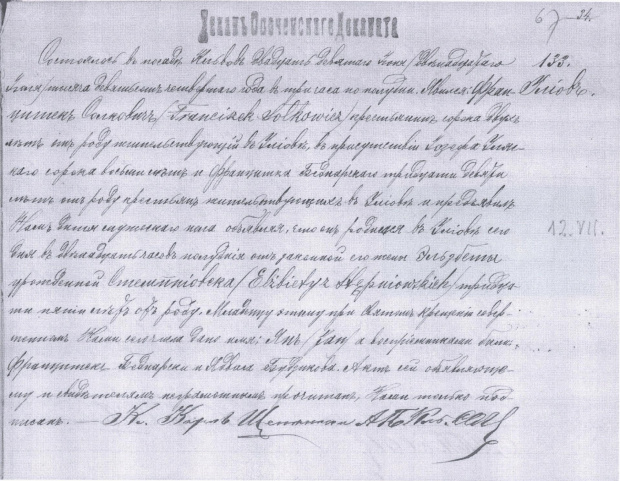 Деканъ Опоченскаго Деканата
67 — 34.
Состоялось въ посадѣ двадцать девятаго Іюня /двѣнадцатаго 133.
Іюля/ тысяча девятьсотъ года въ три часа по полудни. Явился: Фран-
цишекъ Солковичъ /Franciszek Sołkowicz/ крестьянинъ сорока двухъ
лѣтъ отъ роду жительствующій въ въ присутствіи Іозефа
сорока восьми лѣтъ и Францишка Беднарскаго тридцати девяти
лѣтъ отъ роду крестьянъ жительствующихъ въ и предъявилъ
Намъ дитя мужескаго пола объявляя, что онъ родился въ сего
дня въ двѣнадцать часовъ полудня отъ законной его жены Эльжбеты
урожденной Стемпніовска /Elżbiety z Stępniowskich/ тридца-
ти пяти лѣтъ отъ роду. Младенцу этому при Святомъ Крещеніи совер-
шенномъ Нами сего числа дано имя: Янъ /Jan/ а воспріемниками были:
Францишекъ Беднарски и Ядвига Акт сей объявляюще-
му и свидѣтелямъ неграмотнымъ прочитанъ, Нами только под-
писанъ. — Кс. Кароль
12.VII.